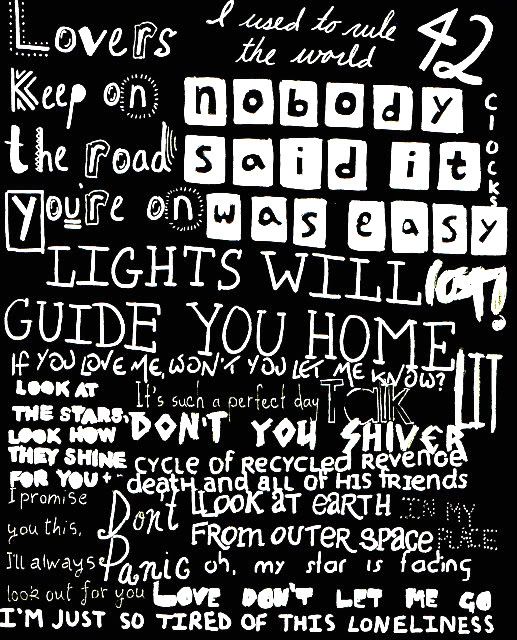 Lovers
Keep on
the road
you're on
I used to rule
the world
42
nobody
said it
was easy
clocks
LIGHTS WILL
GUIDE YOU HOME
lost!
IF YOU LOVE ME, WON'T YOU LET ME KNOW?
LOOK AT
THE STARS,
LOOK HOW
THEY SHINE
FOR YOU
It's such a perfect day
Talk
DON'T YOU SHIVER
cycle of recycled revenge
death and all of his friends
I promise
you this,
I'll always
look out for you
Don't
Panic
LOOK AT EARTH
FROM OUTER SPACE
IN MY
PLACE
oh, my star is fading
LOVE DON'T LET ME GO
I'M JUST SO TIRED OF THIS LONELINESS